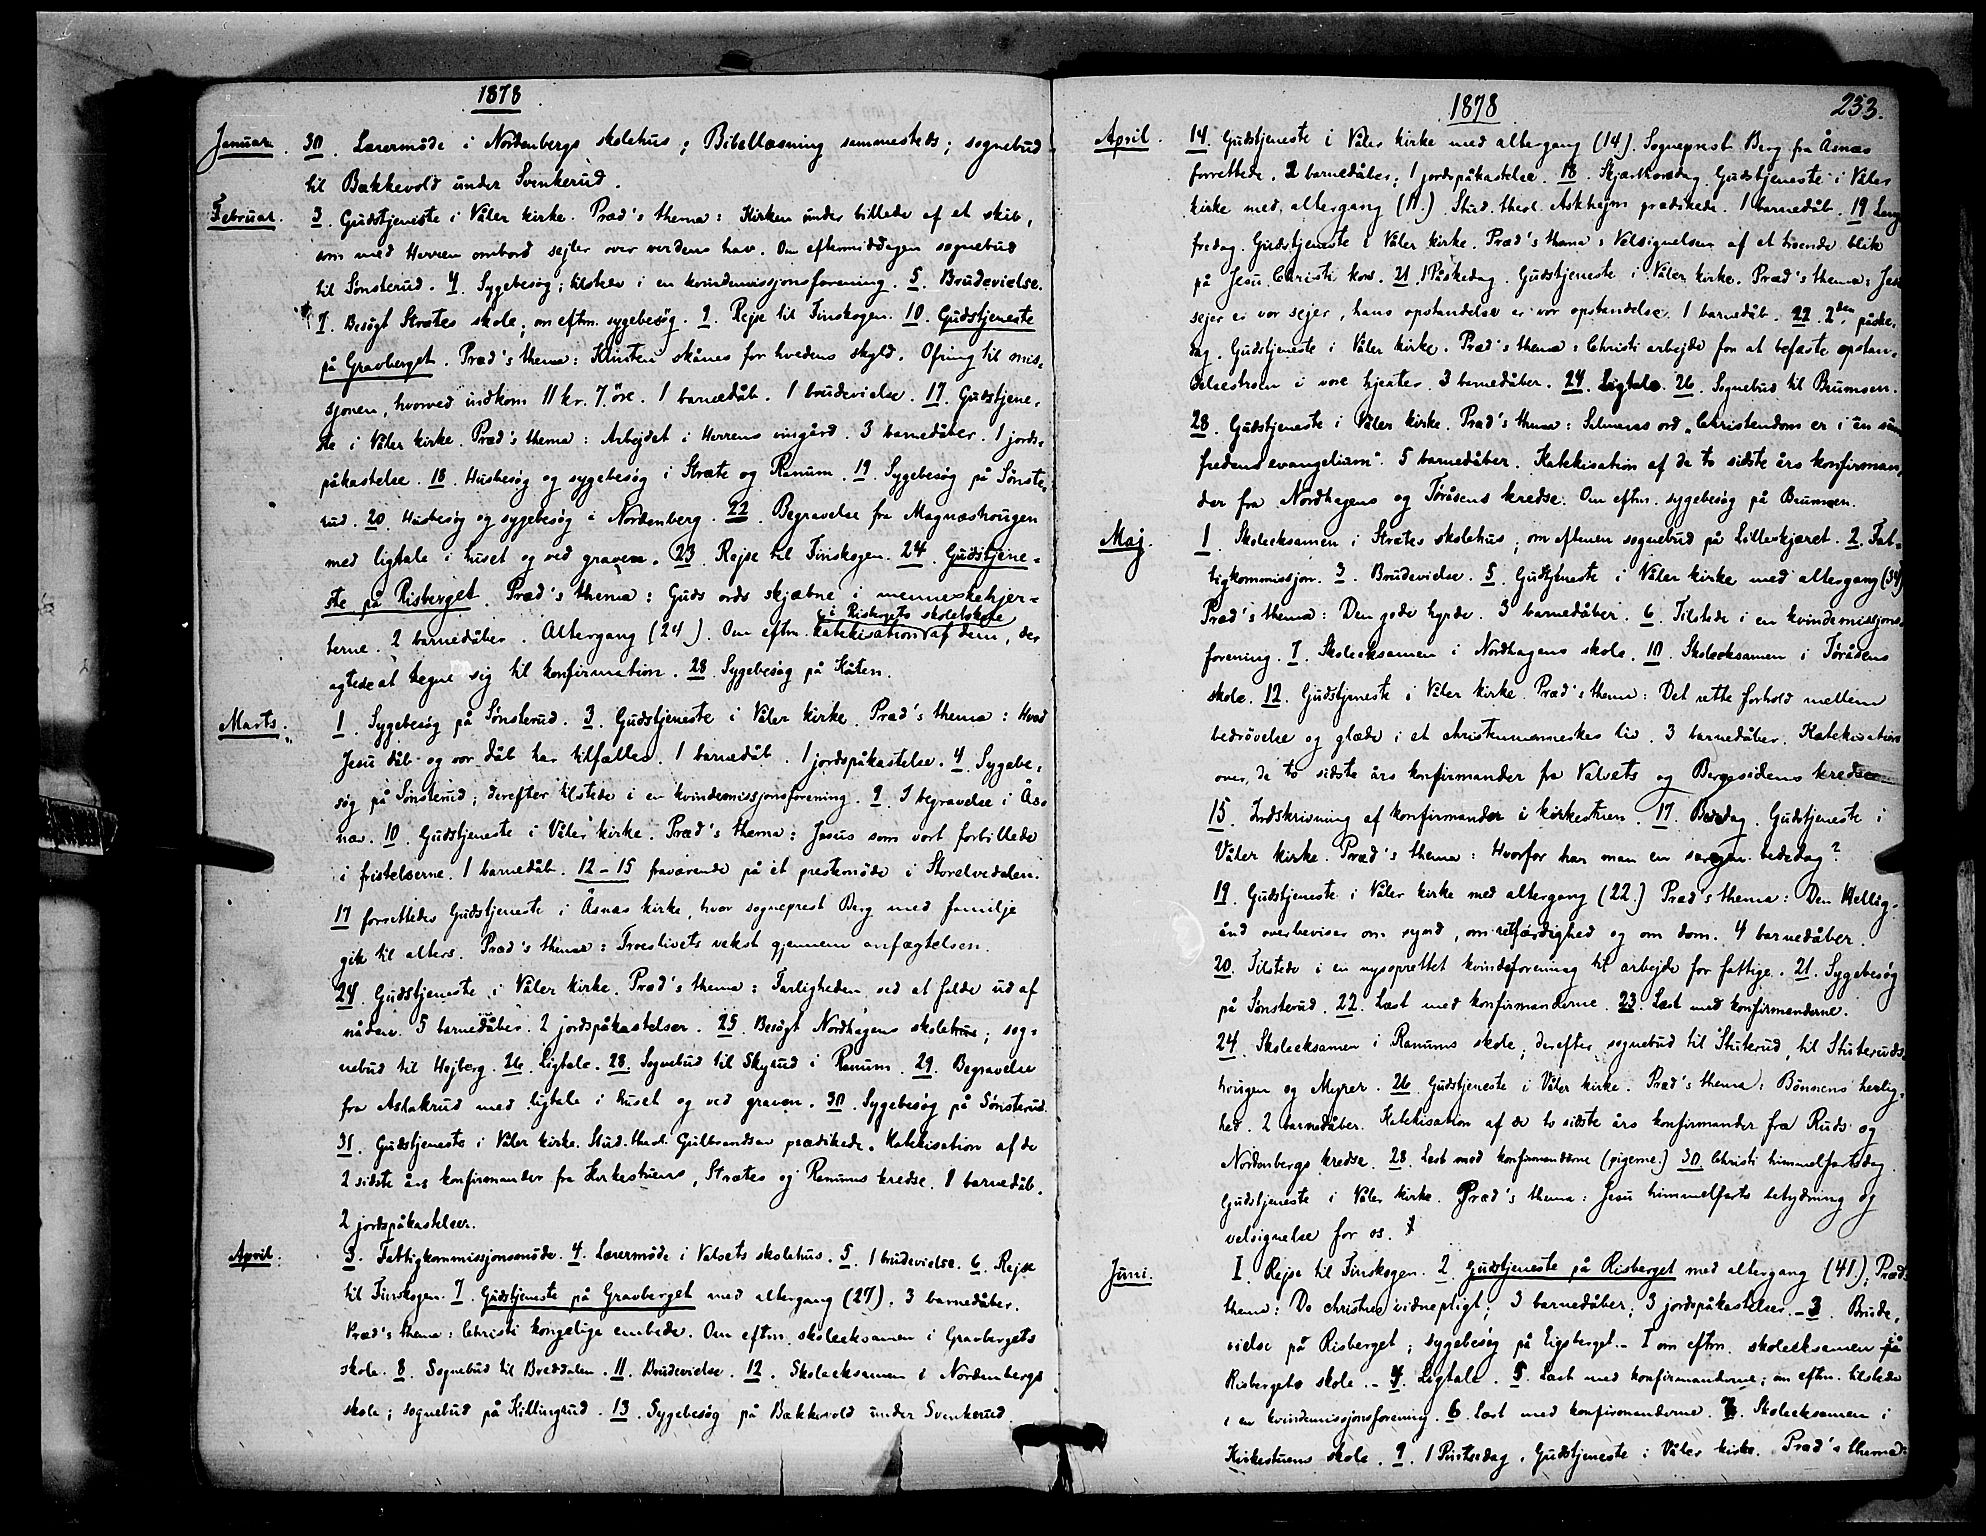 1878
Januar. 30. Lærermøde i Nordenbergs skolehus; Bibellæsning sammesteds; sognebud
til Bækkevold under Svenkerud.
Februar. 3. Gudstjeneste i Våler kirke. Præd's thema: Kirken under billede af et skib,
som med Herren ombord sejler over verdens hav. Om eftermiddagen sognebud
til Sønsterud. 4. Sygebesøg; tilstede i en kvindemissjonsforening. 5. Brudevielse.
7. Besøgt Strætes skole; om eftm. sygebesøg. 9. Rejse til Finskogen. 10. Gudstjeneste
på Gravberget. Præd's thema: Klinten skånes for hvedens skyld. Ofring til mis-
sjonen, hvorved indkom 11 kr. 7 öre. 1 barnedåb. 1 brudevielse. 17. Gudstjene-
ste i Våler kirke. Præd's thema: Arbejdet i Herrens vingård. 3 barnedåber. 1 jords-
påkastelse. 18. Husbesøg og sygebesøg i Stræte og Ranum. 19. Sygebesøg på Sønste-
rud. 20. Husbesøg og sygebesøg i Nordenberg. 22. Begravelse fra Magnæshougen
med ligtale i huset og ved graven. 23. Rejse til Finskogen. 24. Gudstjene-
ste på Risberget. Præd's thema: Guds ords skjæbne i menneskehjer-
i Risbergets skolelokale
terne. 2 barnedåber. Altergang (24). Om eftm. katekisation af dem, der
agtede at tegne sig til konfirmation. 28. Sygebesøg på Kåten.
Marts. 1. Sygebesøg på Sønsterud. 3. Gudstjeneste i Våler kirke. Præd's thema: Hvad
Jesu dåb og vor dåb har tilfælles. 1 barnedåb. 1 jordspåkastelse. 4. Sygebe-
søg på Sønsterud; derefter tilstede i en kvindemissjonsforening. 9. I begravelse i Ås-
næs. 10. Gudstjeneste i Våler kirke. Præd's thema: Jesus som vort forbillede
i fristelserne. 1 barnedåb. 12-15 fraværende på et prestemöde i Storelvedalen.
17 forrettedes Gudstjeneste i Åsnæs kirke, hvor sogneprest Berg med familje
gik til alters. Præd's thema: Troeslivets vekst gjennem anfægtelsen.
24. Gudstjeneste i Våler kirke. Præd's thema: Farligheden ved at falde ud af
nåden. 5 barnedåber. 2 jordspåkastelser. 25. Besøgt Nordhagens skolehus; sog-
nebud til Hejberg. 26. Ligtale. 28. Sognebud til Skyrud i Ranum. 29. Begravelse
fra Astakrud med ligtale i huset og ved graven. 30. Sygebesøg på Sønsterud.
31. Gudstjeneste i Våler kirke. Stud. theol. Gulbrandsen prædikede. Katekisation af de
2 sidste års konfirmander fra Kirkestuens, Strætes og Ranums kredse. 1 barnedåb.
2 jordspåkastelser.
April. 3. Fattigkommissjonsmöde. 4. Lærermöde i Valsets skolehus. 5. 1 brudevielse. 6. Rejse
til Finskogen. 7. Gudstjeneste på Gravberget med altergang (27). 3 barnedåber.
Præd's thema: Christi kongelige embede. Om eftm. skoleeksamen i Gravbergets
skole. 8. Sognebud til Breddalen. 11. Brudevielse. 12. Skoleeksamen i Nordenbergs
skole; sognebud på Killingrud. 13. Sygebesøg på Bækkevold under Svenkerud.
1878 233.
April. 14. Gudstjeneste i Våler kirke med altergang (14). Sogneprest Berg fra Åsnæs
forrettede. 2 barnedåber; 1 jordspåkastelse. 18. Skjærthorsdag. Gudstjeneste i Våler
kirke med altergang (11.) Stud. theol. Askhejm prædikede. 1 barnedåb. 19 Lang-
fredag. Gudstjeneste i Våler kirke. Præd's thema: Velsignelsen af et troende blik
på Jesu Christi kors. 21. 1 Påskedag. Gudstjeneste i Våler kirke. Præd's thema: Jesu
sejer er vor sejer, hans opstandelse er vor opstandelse. 1 barnedåb. 22. 2den påske-
dag. Gudstjeneste i Våler kirke. Præd's thema: Christi arbejde for at befæste opstan-
delsestroen i vore hjerter. 3 barnedåber. 24. Ligtale. 26. Sognebud til Brumoen.
28. Gudstjeneste i Våler kirke. Præd's thema: Salmens ord „Christendom er i än sum
fredens evangelium". 5 barnedåber. Katekisation af de to sidste års konfirman-
der fra Nordhagens og Töråsens kredse. Om eftm. sygebesøg på Brumoen.
Maj. 1. Skoleeksamen i Strætes skolehus; om aftenen sognebud på Lilleskjæret. 2. Fat-
tigkommissjon. 3. Brudevielse. 5. Gudstjeneste i Våler kirke med altergang (34)
Præd's thema: Den gode hyrde. 3 barnedåber. 6. Tilstede i en kvindemissjons-
forening. 7. Skoleeksamen i Nordhagens skole. 10. Skoleeksamen i Töråsens
skole. 12. Gudstjeneste i Våler kirke. Præd's thema: Det rette forhold mellem
bedrövelse og glæde i et christenmenneskes liv. 3 barnedåber. Katekisation
over de to sidste års konfirmander fra Valsets og Bergesidens kredse
15. Indskrivning af konfirmander i kirkestuen. 17. Bededag. Gudstjeneste i
Våler kirke. Præd's thema: Hvorfor har man en særegen bededag?
19. Gudstjeneste i Våler kirke med altergang (22.) Præd's thema: Den Hellig-
ånd overbeviser om synd, om retfærdighed og om dom. 4 barnedåber.
20. Tilstede i en nysoprettet kvindeforening til arbejde for fattige. 21. Sygebesøg
på Sønsterud. 22. Læst med konfirmanderne. 23. Læst med konfirmanderne.
24. Skoleeksamen i Ranums skole; derefter sognebud til Stuterud, til Stuteruds-
hougen og Myrer. 26. Gudstjeneste i Våler kirke. Præd's thema: Bönnens herlig-
hed. 2 barnedåber. Katekisation af de to sidste års konfirmander fra Ruds og
Nordenbergs kredse. 28. Læst med konfirmanderne (pigerne.) 30. Christi himmelfartsdag.
Gudstjeneste i Våler kirke. Præd's thema: Jesu himmelfarts betydning og
velsignelse for os.
Juni. 1. Rejse til Finskogen. 2. Gudstjeneste på Risberget med altergang (41); Præd's
thema: De christnes vidnepligt; 3 barnedåber; 3 jordspåkastelser. - 3. Brude-
vielse på Risberget; sygebesøg på Ligsberget. - I om eftm. skoleeksamen på
Risbergets skole. - 4. Ligtale. 5. Læst med konfirmanderne; om eftm. tilstede
i en kvindemissjonsforening. 6. Læst med konfirmanderne. 7. Skoleeksamen i
Kirkestuens skole. 9. 1 Pintsedag. Gudstjeneste i Våler kirke. Præd's thema: